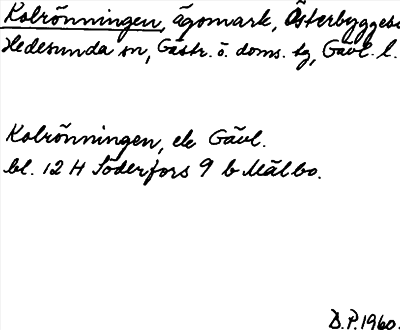 Kolrönningen, ägomark, Österbyggebo
Hedesunda sn, Gästr. ö. doms. tg, Gävl. l.
Kolrönningen, ek Gävl.
bl. 12 H Söderfors 9 b Mälbo.
D.P. 1960.